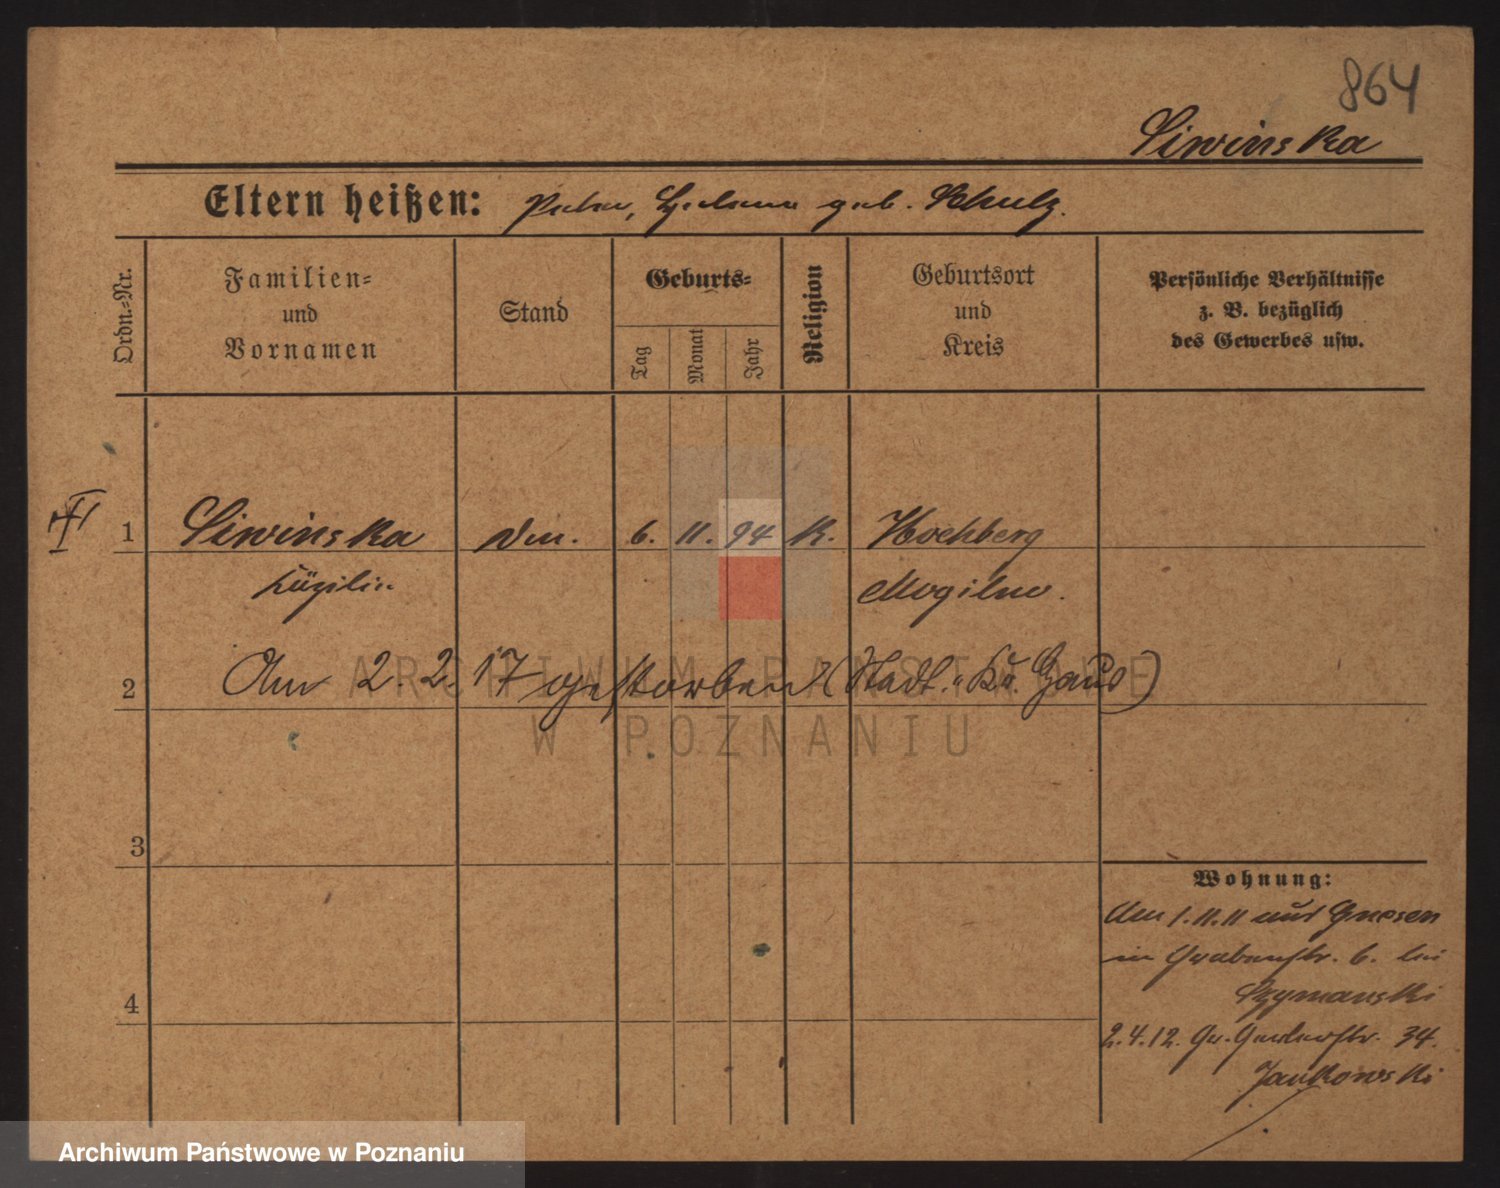 864
Siwinska
Eltern heißen: Peter, Helena geb. Schulz.
Ordn.-Nr.
Familien-
und
Vornamen
Stand
Geburts-
Tag
Monat
Jahr
Religion
Geburtsort
und
Kreis
Persönliche Verhältnisse
z. B. bezüglich
des Gewerbes usw.
1 Siwinska 6. 11. 94 K. Hochberg
Mogilno.
2 Am 2. 2. 17 gestorben (Stadt. Kr. Haus)
3
4
Wohnung:
Am 1.11.11 aus Gnesen
in Grabenstr. 6. bei
Szymanski
2.4.12. Gr. Gerberstr. 34.
Jankowski
ARCHIWUM PAŃSTWOWE
W POZNANIU
Archiwum Państwowe w Poznaniu